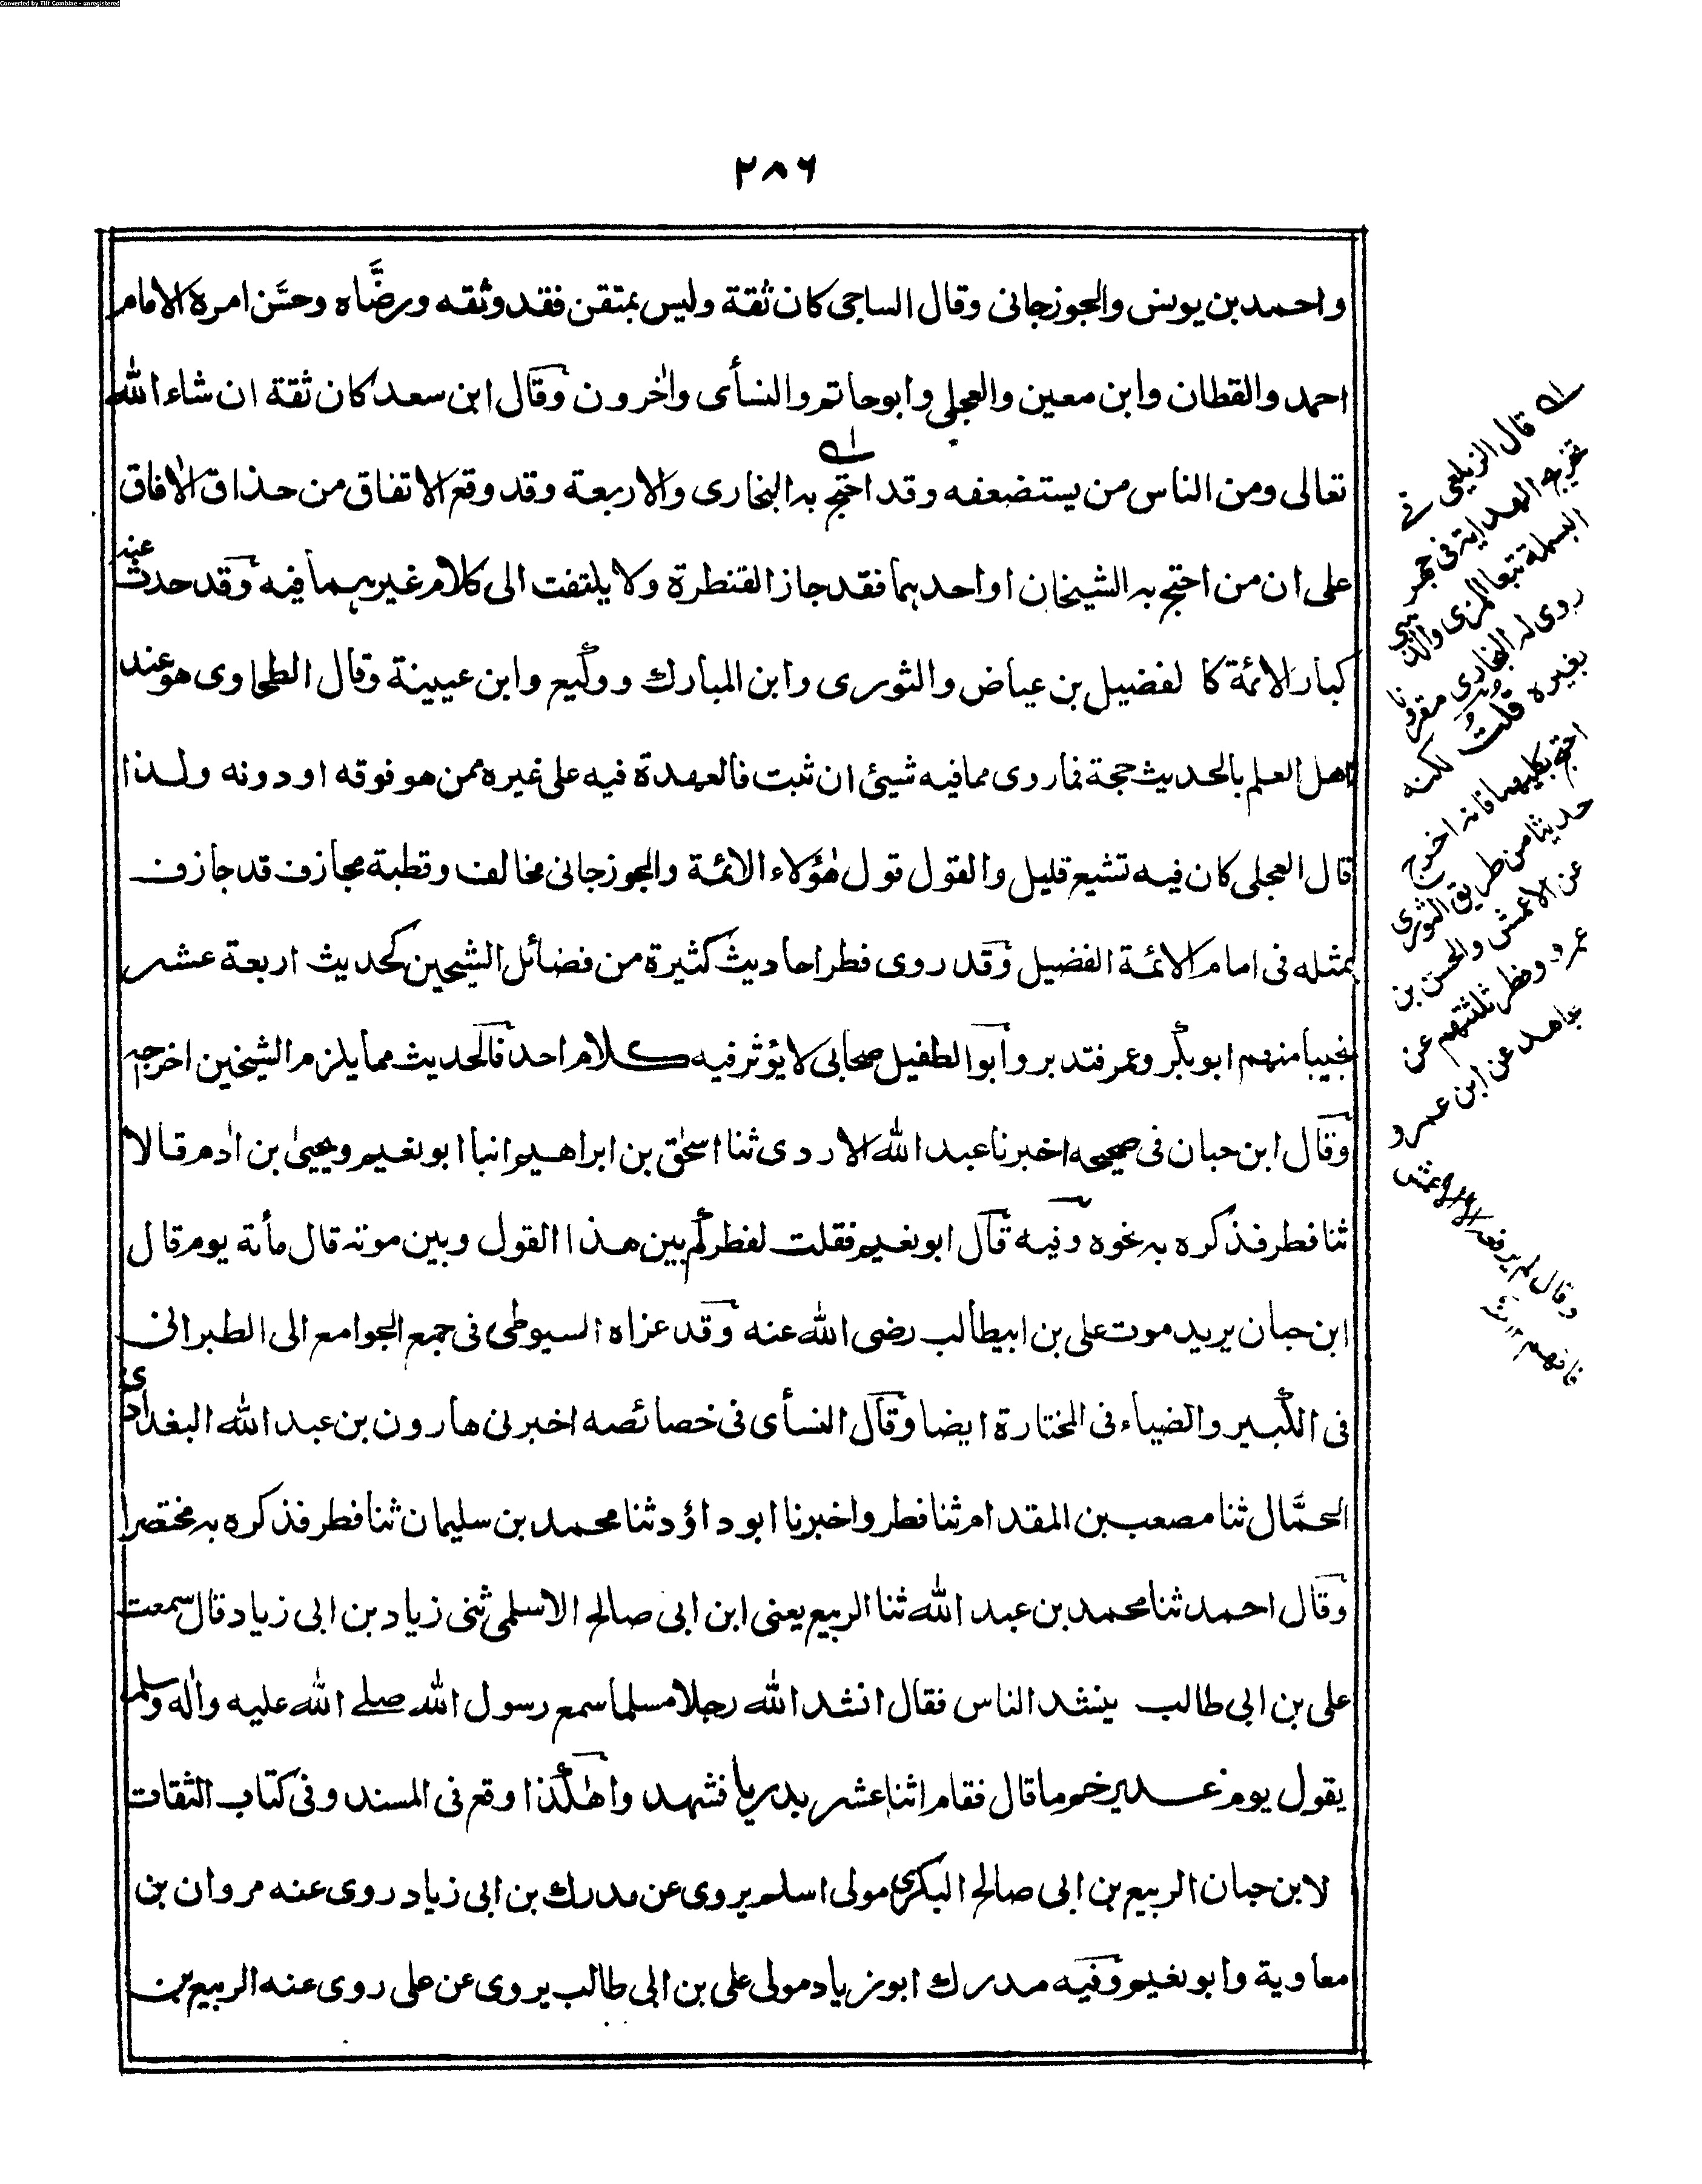 Converted by Tiff Combine - unregistered
۲۸۶
واحمد بن يونس والجوزجانى وقال الساجى كان ثقة وليس بمتقن فقد وثقه ورضَّاه وحسَّن امره الامام
احمد والقطان وابن معين والعجلى وابوحاتم والنسأى واٰخرون وقال ابن سعد كان ثقة ان شاء الله
تعالى ومن الناس من يستضعفه وقد احتج به البخارى والاربعة وقد وقع الاتفاق من حذاق الاٰفاق
على ان من احتج به الشيخان او احدهما فقد جاز القنطرة ولا يلتفت الى كلام غيرهما فيه وقد حدث عنه
كبار الائمة كا لفضيل بن عياض والثورى وابن المبارك ووكيع وابن عيينة وقال الطحاوى هو عند
اهل العلم بالحديث حجة فما روى مما فيه شيئ ان ثبت فالعهدة فيه على غيره ممن هو فوقه او دونه ولذا
قال العجلى كان فيه تشيع قليل والقول قول هٰؤلاء الائمة والجوزجانى مخالف وقطبة مجازف قد جازف
بمثله فى امام الائمة الفضيل وقد روى فطر احاديث كثيرة من فضائل الشيخين كحديث اربعة عشر
نجيبا منهم ابوبكر وعمر فتدبر وابو الطفيل صحابى لا يؤثر فيه كلام احد فالحديث مما يلزم الشيخين اخراجه
وقال ابن حبان فى صحيحه اخبرنا عبد الله الازدى ثنا اسحٰق بن ابراهيم انبا ابو نعيم ويحيىٰ بن اٰدم قالا
ثنا فطر فذكره به نحوه وفيه قال ابو نعيم فقلت لفطر كم بين هذا القول وبين موته قال مأة يوم قال
ابن حبان يريد موت على بن ابيطالب رضى الله عنه وقد عزاه السيوطى فى جمع الجوامع الى الطبرانى
فى الكبير والضياء فى المختارة ايضا وقال النسأى فى خصائصه اخبرنى هارون بن عبد الله البغدادى
الحمَّال ثنا مصعب بن المقدام ثنا فطر واخبرنا ابوداؤد ثنا محمد بن سليمان ثنا فطر فذكره به مختصرا
وقال احمد ثنا محمد بن عبد الله ثنا الربيع يعنى ابن ابى صالح الاسلمى ثنى زياد بن ابى زياد قال سمعت
على بن ابى طالب ينشد الناس فقال انشد الله رجلا مسلما سمع رسول الله صلے الله عليه واٰله وسلم
يقول يوم غدير خم ما قال فقام اثنا عشر بدريا فشهدوا هٰكذا وقع فى المسند وفى كتاب الثقات
لابن حبان الربيع بن ابى صالح البكرى مولى اسلم يروى عن مدرك بن ابى زياد روى عنه مروان بن
معاوية وابو نعيم وفيه مدرك ابو زياد مولى على بن ابى طالب يروى عن على روى عنه الربيع بن
قال الزيلعى فے
تخريجه الهداية فى جهر
البسملة تبعا للمزى والذهبى
روى له البخارى مقرونا
بغيره قلت لكنه
احتج بكليهما فانه اخرج
حديثا من طريق الثورى
عن الاعمش والحسن بن
عمرو وفطر ثلثتهم عن
مجاهد عن ابن عمرو
وقال لم يرفعه الاعمش
فافهم